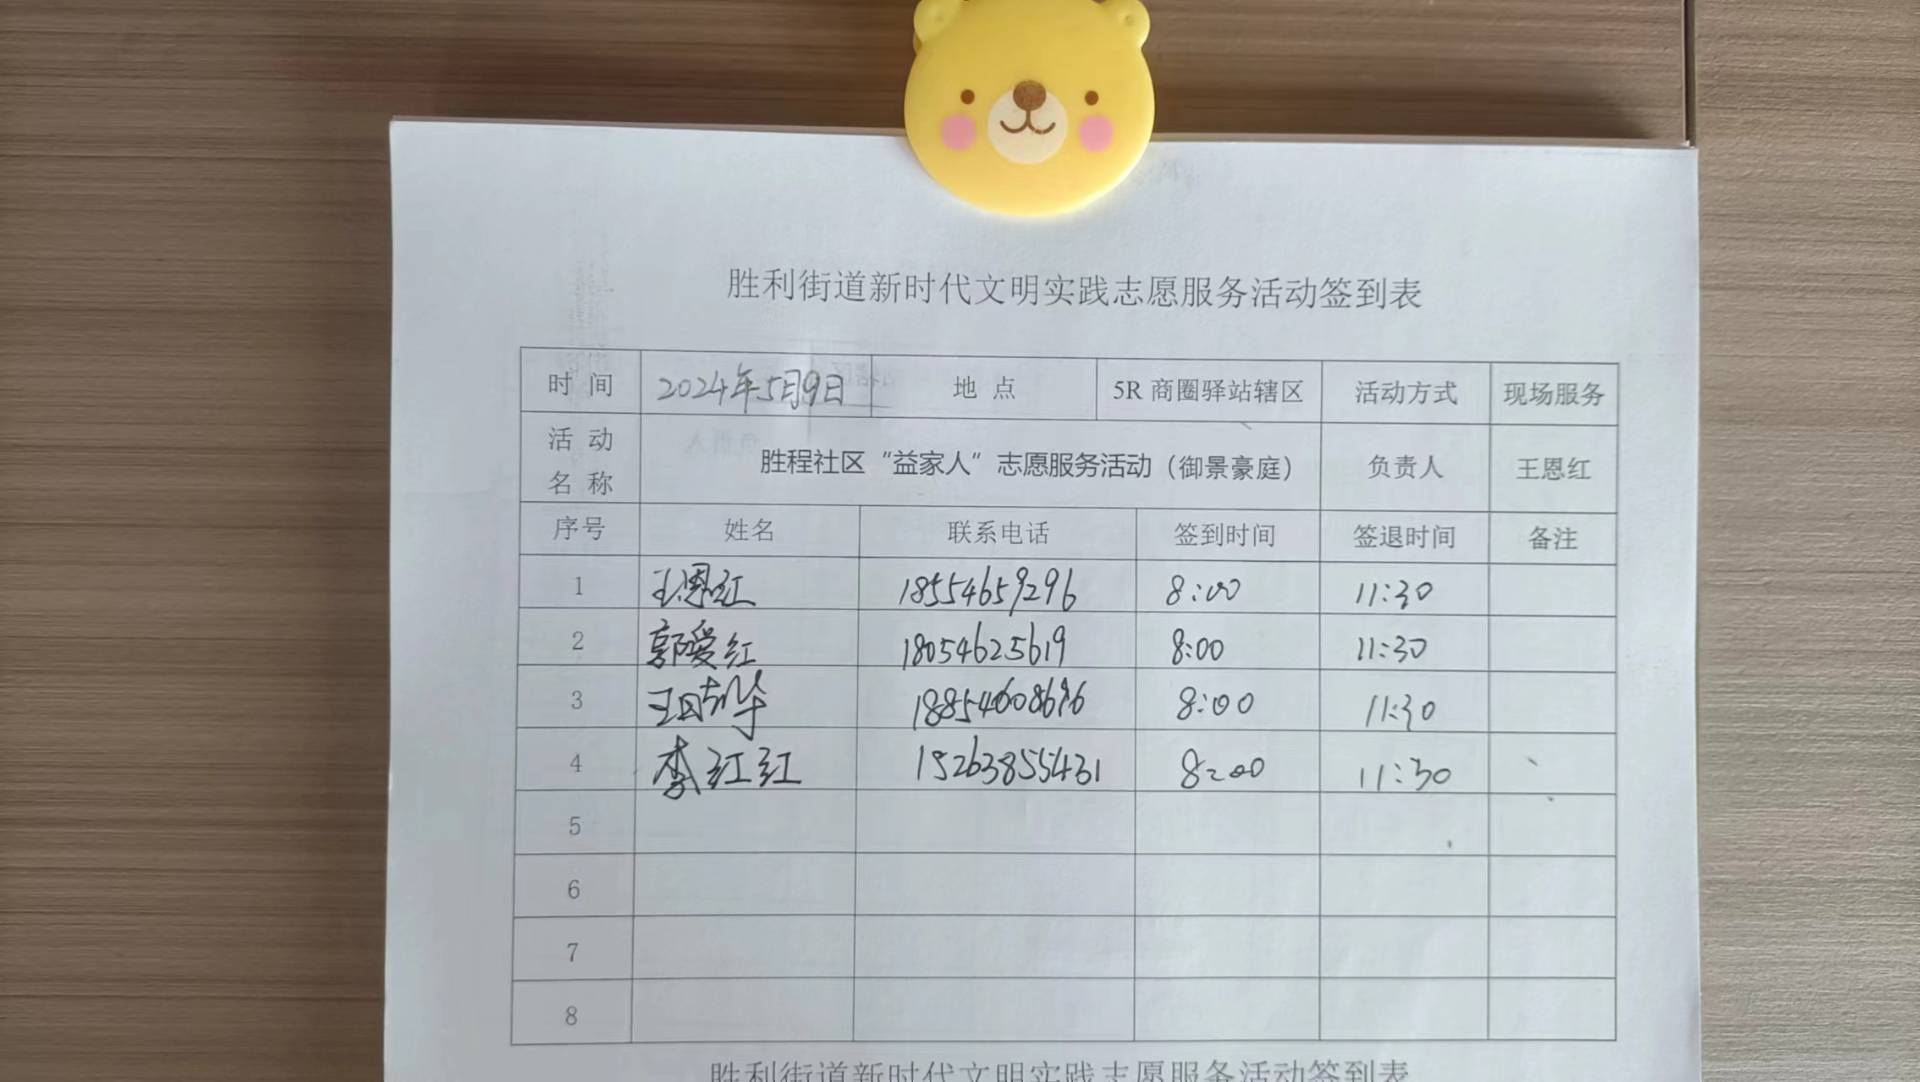 胜利街道新时代文明实践志愿服务活动签到表
时 间 2024年5月9日 地 点 5R 商圈驿站辖区 活动方式 现场服务
活 动 名 称 胜程社区“益家人”志愿服务活动（御景豪庭） 负责人 王恩红
序号 姓名 联系电话 签到时间 签退时间 备注
1 王恩红 18554659296 8:00 11:30
2 郭爱红 18054625619 8:00 11:30
3 18854608696 8:00 11:30
4 李红红 15263855431 8:00 11:30
5
6
7
8
胜利街道新时代文明实践志愿服务活动签到表